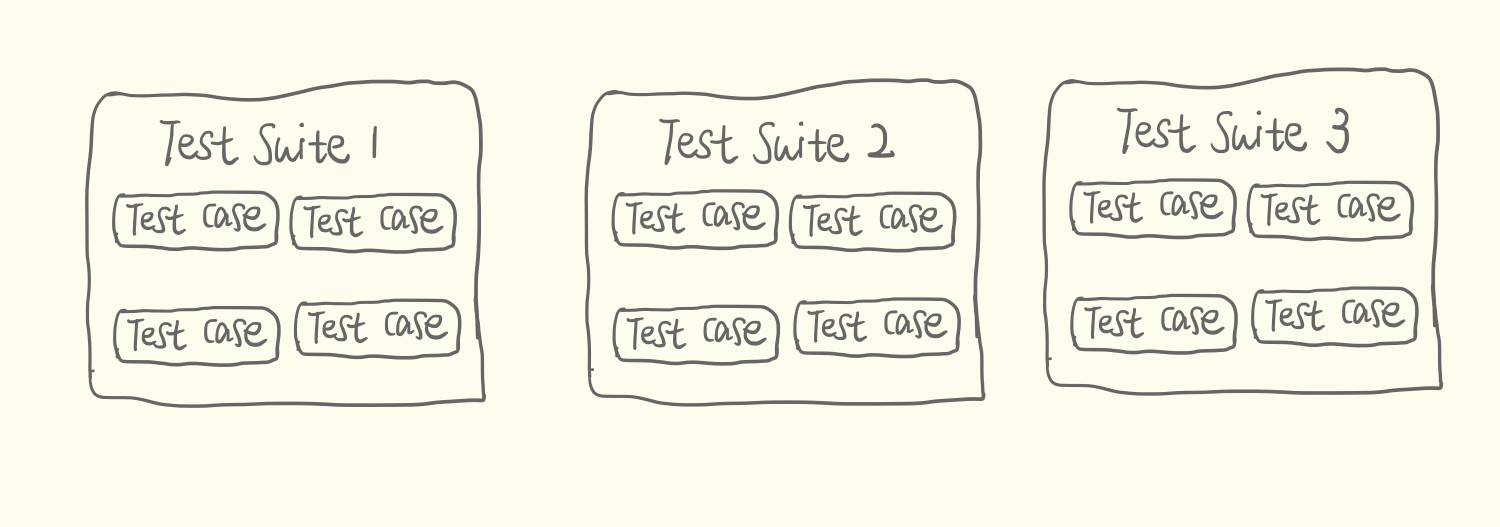 Test Suite 1
Test Case Test Case
Test Case Test Case
Test Suite 2
Test Case Test Case
Test Case Test Case
Test Suite 3
Test Case Test Case
Test Case Test Case